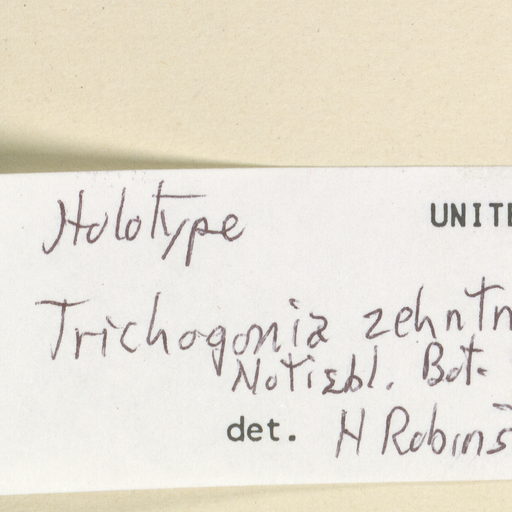 Holotype
UNITE
Trichogonia zehntn
Notizbl. Bot.
det. H Robins